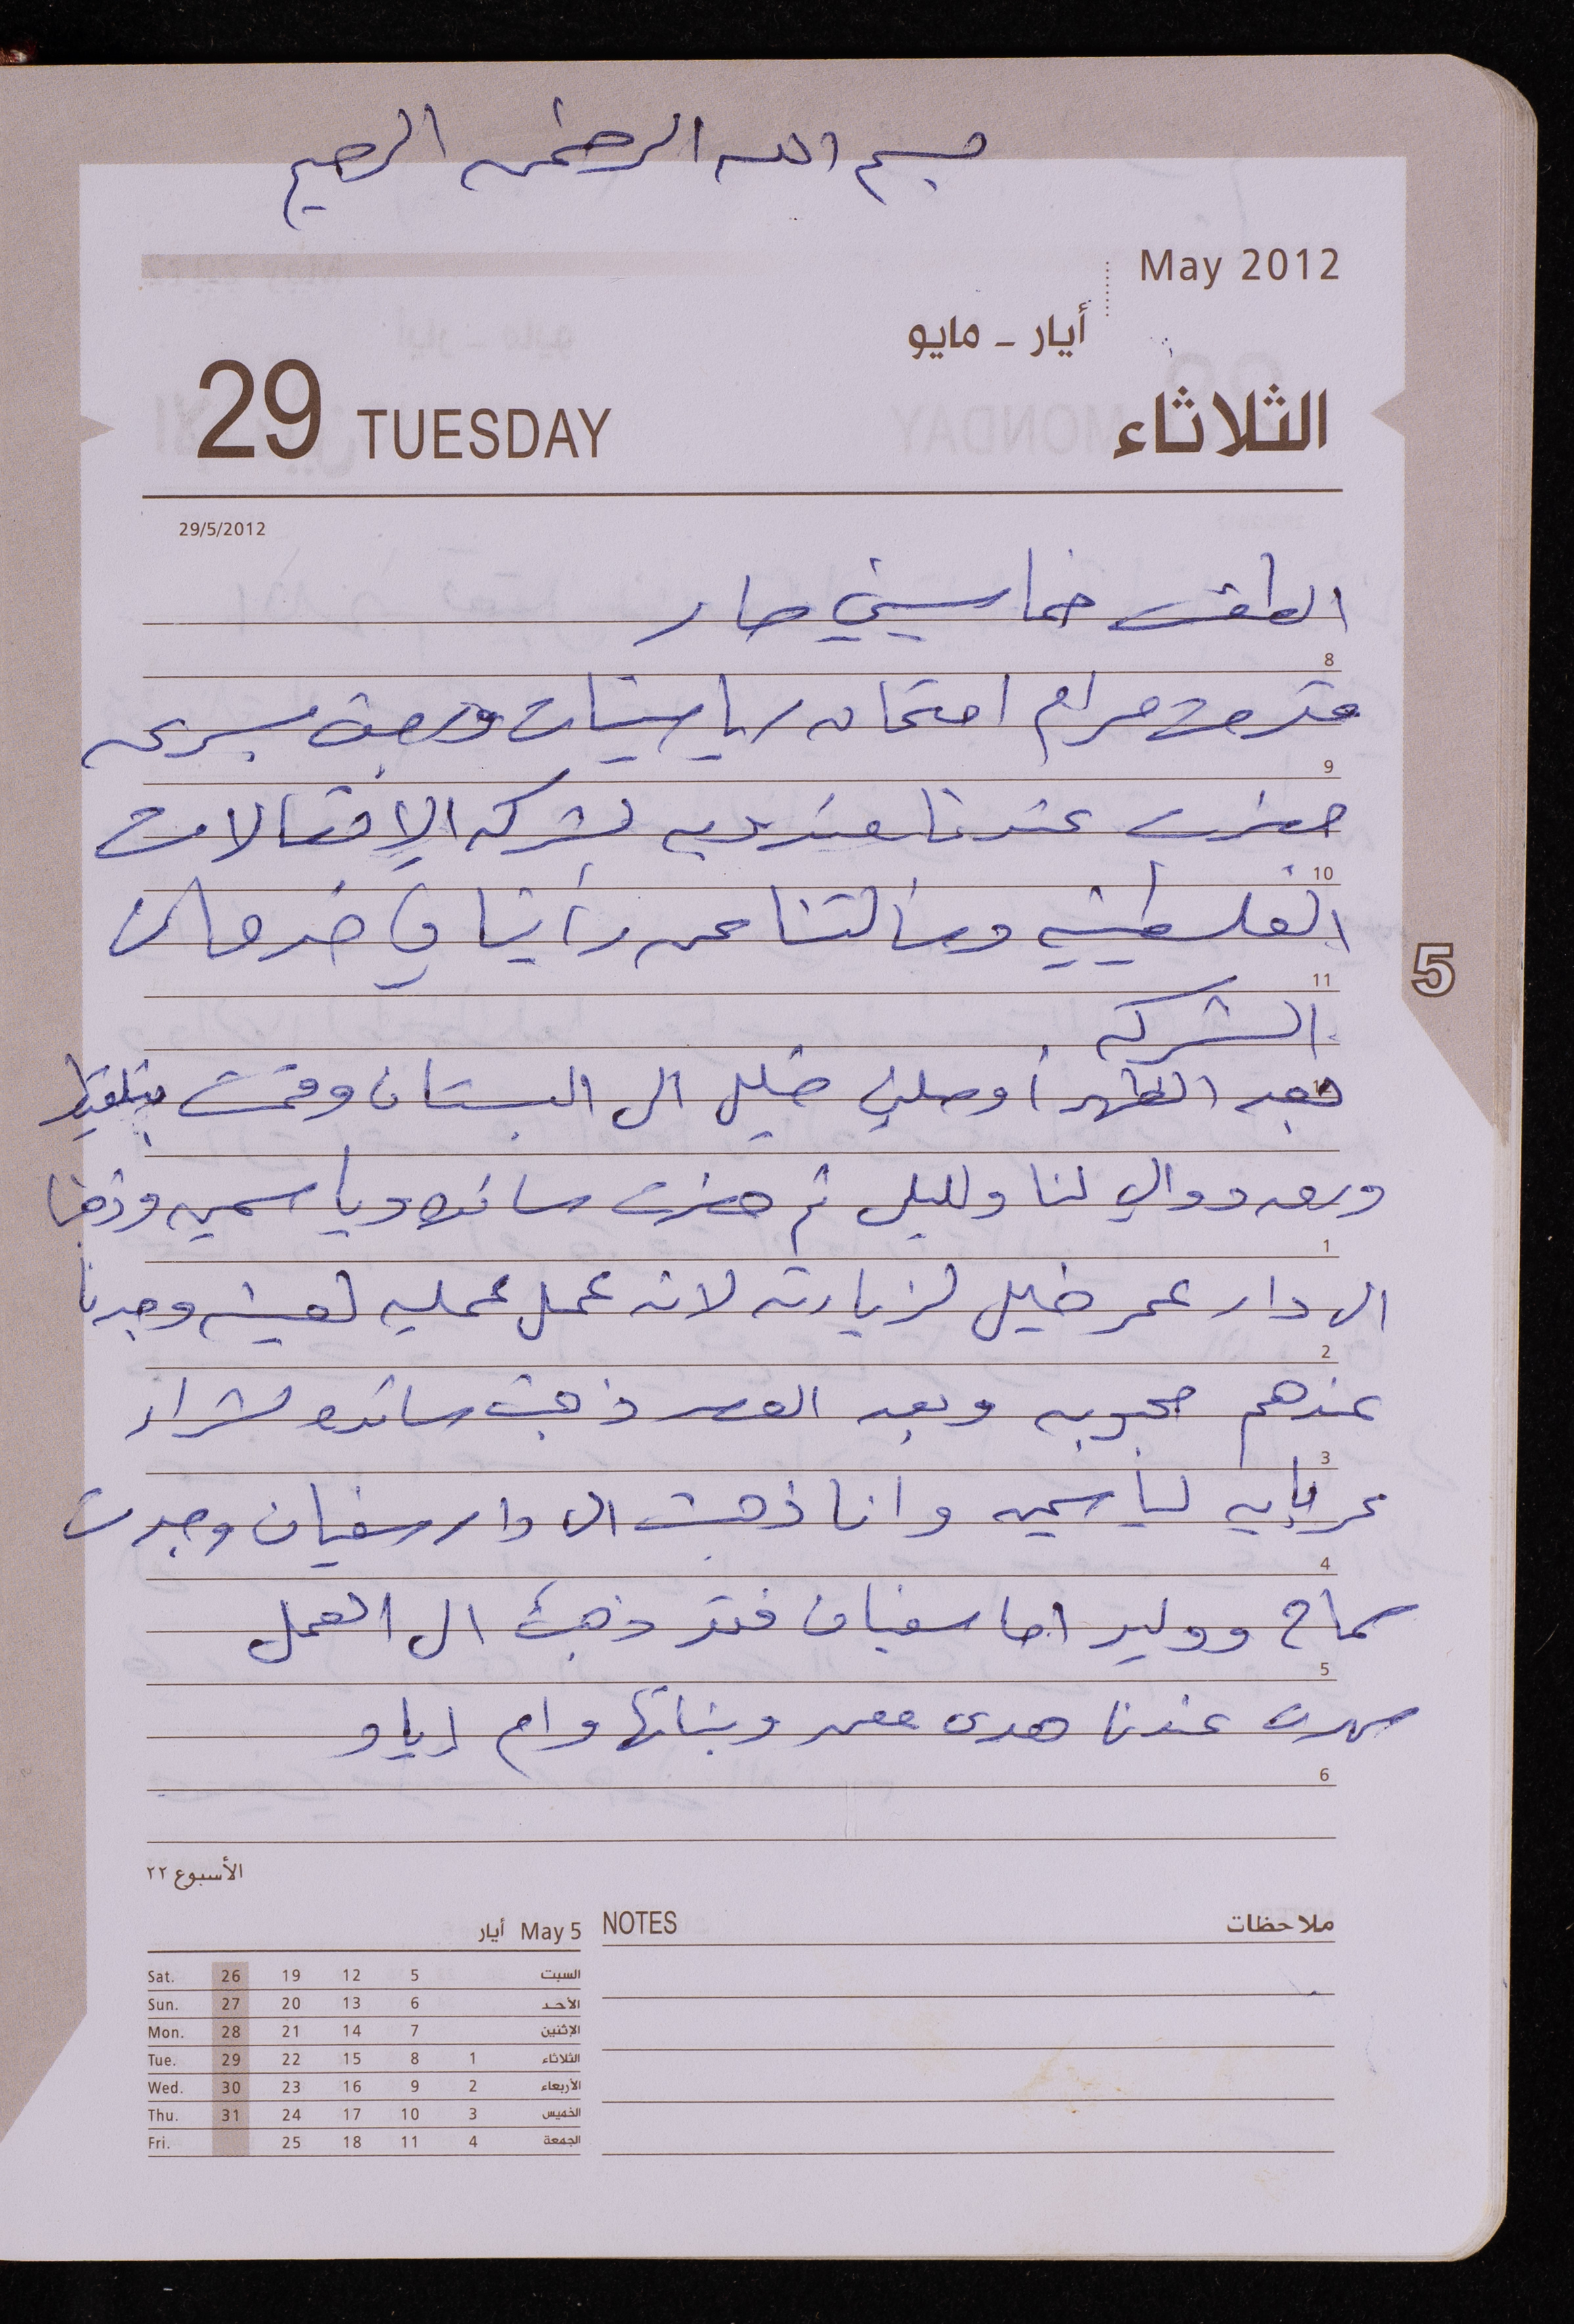 بسم الله الرحمن الرحيم
May 2012
أيار - مايو
29 TUESDAY
الثلاثاء
29/5/2012
الطقس خماسيني حار
8
قدمت مرام امتحان رياضيات ورجعت بسرعه
9
حضرت عندنا مندوبه لشركه الإتصالات
10
الفلسطينيه وسألتنا عن رأينا في خدمات
11
الشركه
بعد الظهر أوصلني خليل الى البستان وقمت بتلقيط
ورق دوالي لنا ولليلى ثم حضرت سائده وياسمين وذهبنا
1
الى دار عمر خليل لزيارته لانه عمل عمليه لعينيه وجدنا
2
عندهم محبوبه وبعد العصر ذهبت سائده لشراء
3
عربايه لياسمين وانا ذهبت الى دار سفيان وجدت
4
سماح ووليد اما سفيان فقد ذهب الى العمل
5
سهرت عندنا هدى معمر وبناتها وام اياد
6
الأسبوع ٢٢
أيار May 5
NOTES
ملاحظات
Sat. 26 19 12 5 السبت
Sun. 27 20 13 6 الأحد
Mon. 28 21 14 7 الإثنين
Tue. 29 22 15 8 1 الثلاثاء
Wed. 30 23 16 9 2 الأربعاء
Thu. 31 24 17 10 3 الخميس
Fri. 25 18 11 4 الجمعة
5